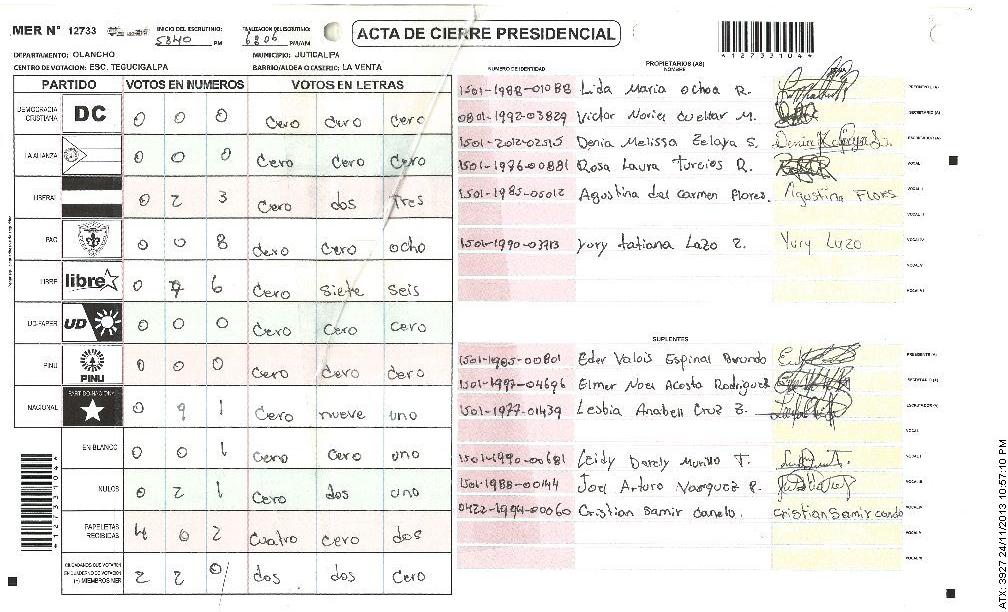 MER Nº 12733
INICIO DEL ESCRUTINIO: 5:40 PM
FINALIZACION DEL ESCRUTINIO: PM/AM
ACTA DE CIERRE PRESIDENCIAL
*12733104*
DEPARTAMENTO: OLANCHO
MUNICIPIO: JUTICALPA
CENTRO DE VOTACION: ESC. TEGUCIGALPA
BARRIO/ALDEA O CASERIO: LA VENTA
PARTIDO VOTOS EN NUMEROS VOTOS EN LETRAS
DEMOCRACIA CRISTIANA DC 0 0 0 Cero Cero Cero
LA ALIANZA 0 0 0 Cero Cero Cero
LIBERAL 0 2 3 Cero dos Tres
PAC 0 0 8 Cero Cero ocho
LIBRE libre 0 7 6 Cero Siete Seis
UD-FAPER UD 0 0 0 Cero Cero Cero
PINU PINU 0 0 0 Cero Cero Cero
NACIONAL PARTIDO NACIONAL 0 9 1 Cero nueve uno
EN BLANCO 0 0 1 Cero Cero uno
NULOS 0 2 1 Cero dos uno
PAPELETAS RECIBIDAS 4 0 2 Cuatro Cero dos
CIUDADANOS QUE VOTARON EN CUADERNO DE VOTACION (+) MIEMBROS MER 2 2 0 dos dos Cero
*12733104*
NUMERO DE IDENTIDAD PROPIETARIOS (AS) NOMBRE
1501-1988-01088 Lida Maria Ochoa R. PRESIDENTE (A)
0801-1992-03829 Victor Noriel Cuellar M. SECRETARIO (A)
1501-2012-02515 Denia Melissa Zelaya S. ESCRUTADOR (A)
1501-1976-00881 Rosa Laura Turcios R. VOCAL I
1501-1985-05012 Agustina del Carmen Flores. Agustina FLORES VOCAL II
VOCAL III
1501-1990-03713 Yury tatiana Lazo Z. Yury Lazo VOCAL IV
VOCAL V
VOCAL VI
SUPLENTES
1501-1985-00801 Eder Valois Espinal PRESIDENTE (A)
1501-1997-04696 Elmer Noel Acosta Rodriguez SECRETARIO (A)
1501-1977-01439 Lesbia Anabell Cruz Z. ESCRUTADOR (A)
VOCAL I
1501-1990-00681 Leidy Darely Murillo T. VOCAL II
1501-1988-00144 Joel Arturo Vasquez P. VOCAL III
0422-1994-00060 Cristian Samir Canelo. Cristian Samir VOCAL IV
VOCAL V
VOCAL VI
ATX: 3927 24/11/2013 10:57:10 PM